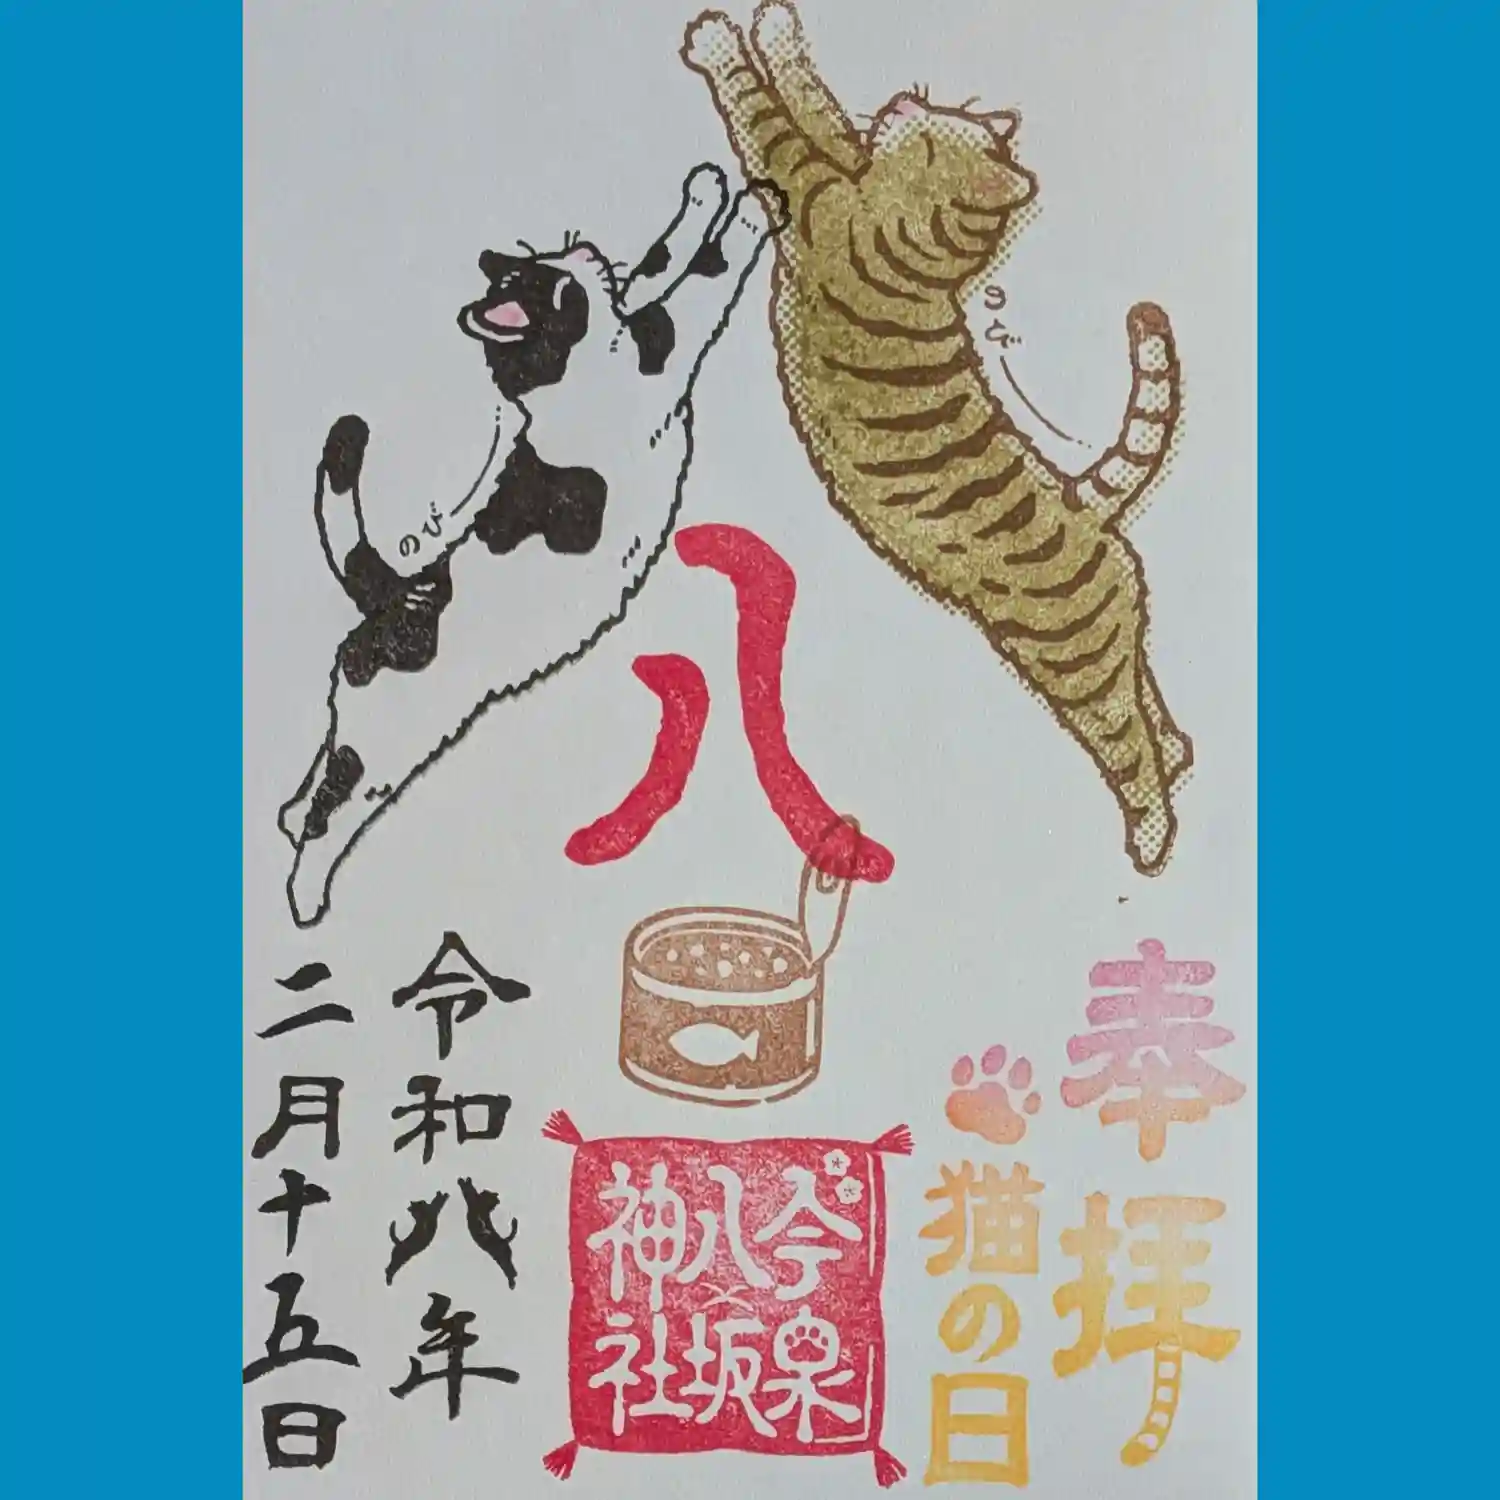 奉拝
猫の日
のび
八
今泉
八坂
神社
のび
令和八年
二月十五日